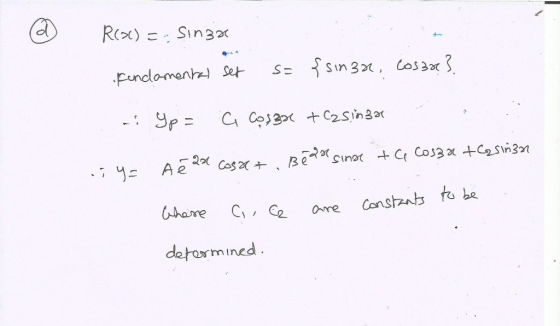 ② R(x) = sin3x
Fundamental set s = {sin3x, cos3x}.
∴ yp = C₁ cos3x + C₂ sin3x
∴ y = Ae⁻²ˣ cosx + Be⁻²ˣ sinx + C₁ cos3x + C₂ sin3x
where C₁, C₂ are constants to be
determined.